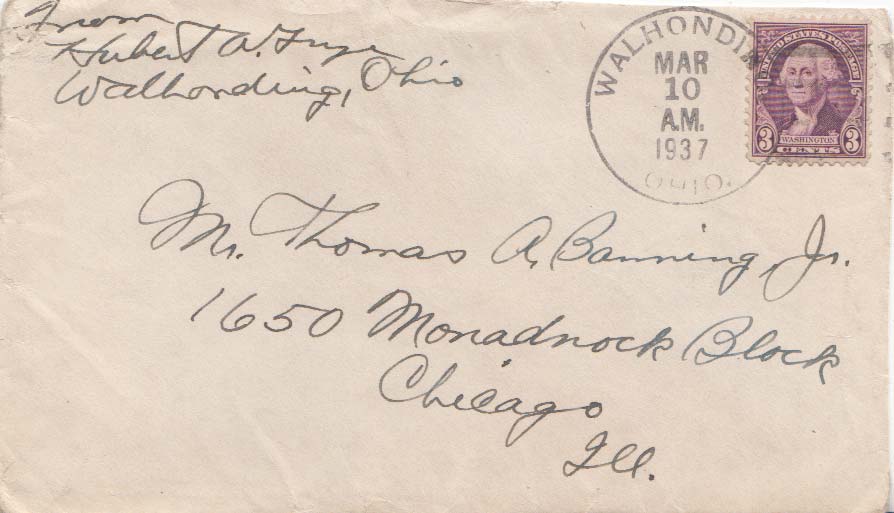 From
Hubert W. Frye
Walhonding, Ohio
WALHONDIN
MAR
10
A.M.
1937
OHIO.
UNITED STATES POSTAGE
3 WASHINGTON 3
CENTS
Mr. Thomas A. Banning, Jr.
1650 Monadnock Block
Chicago
Ill.